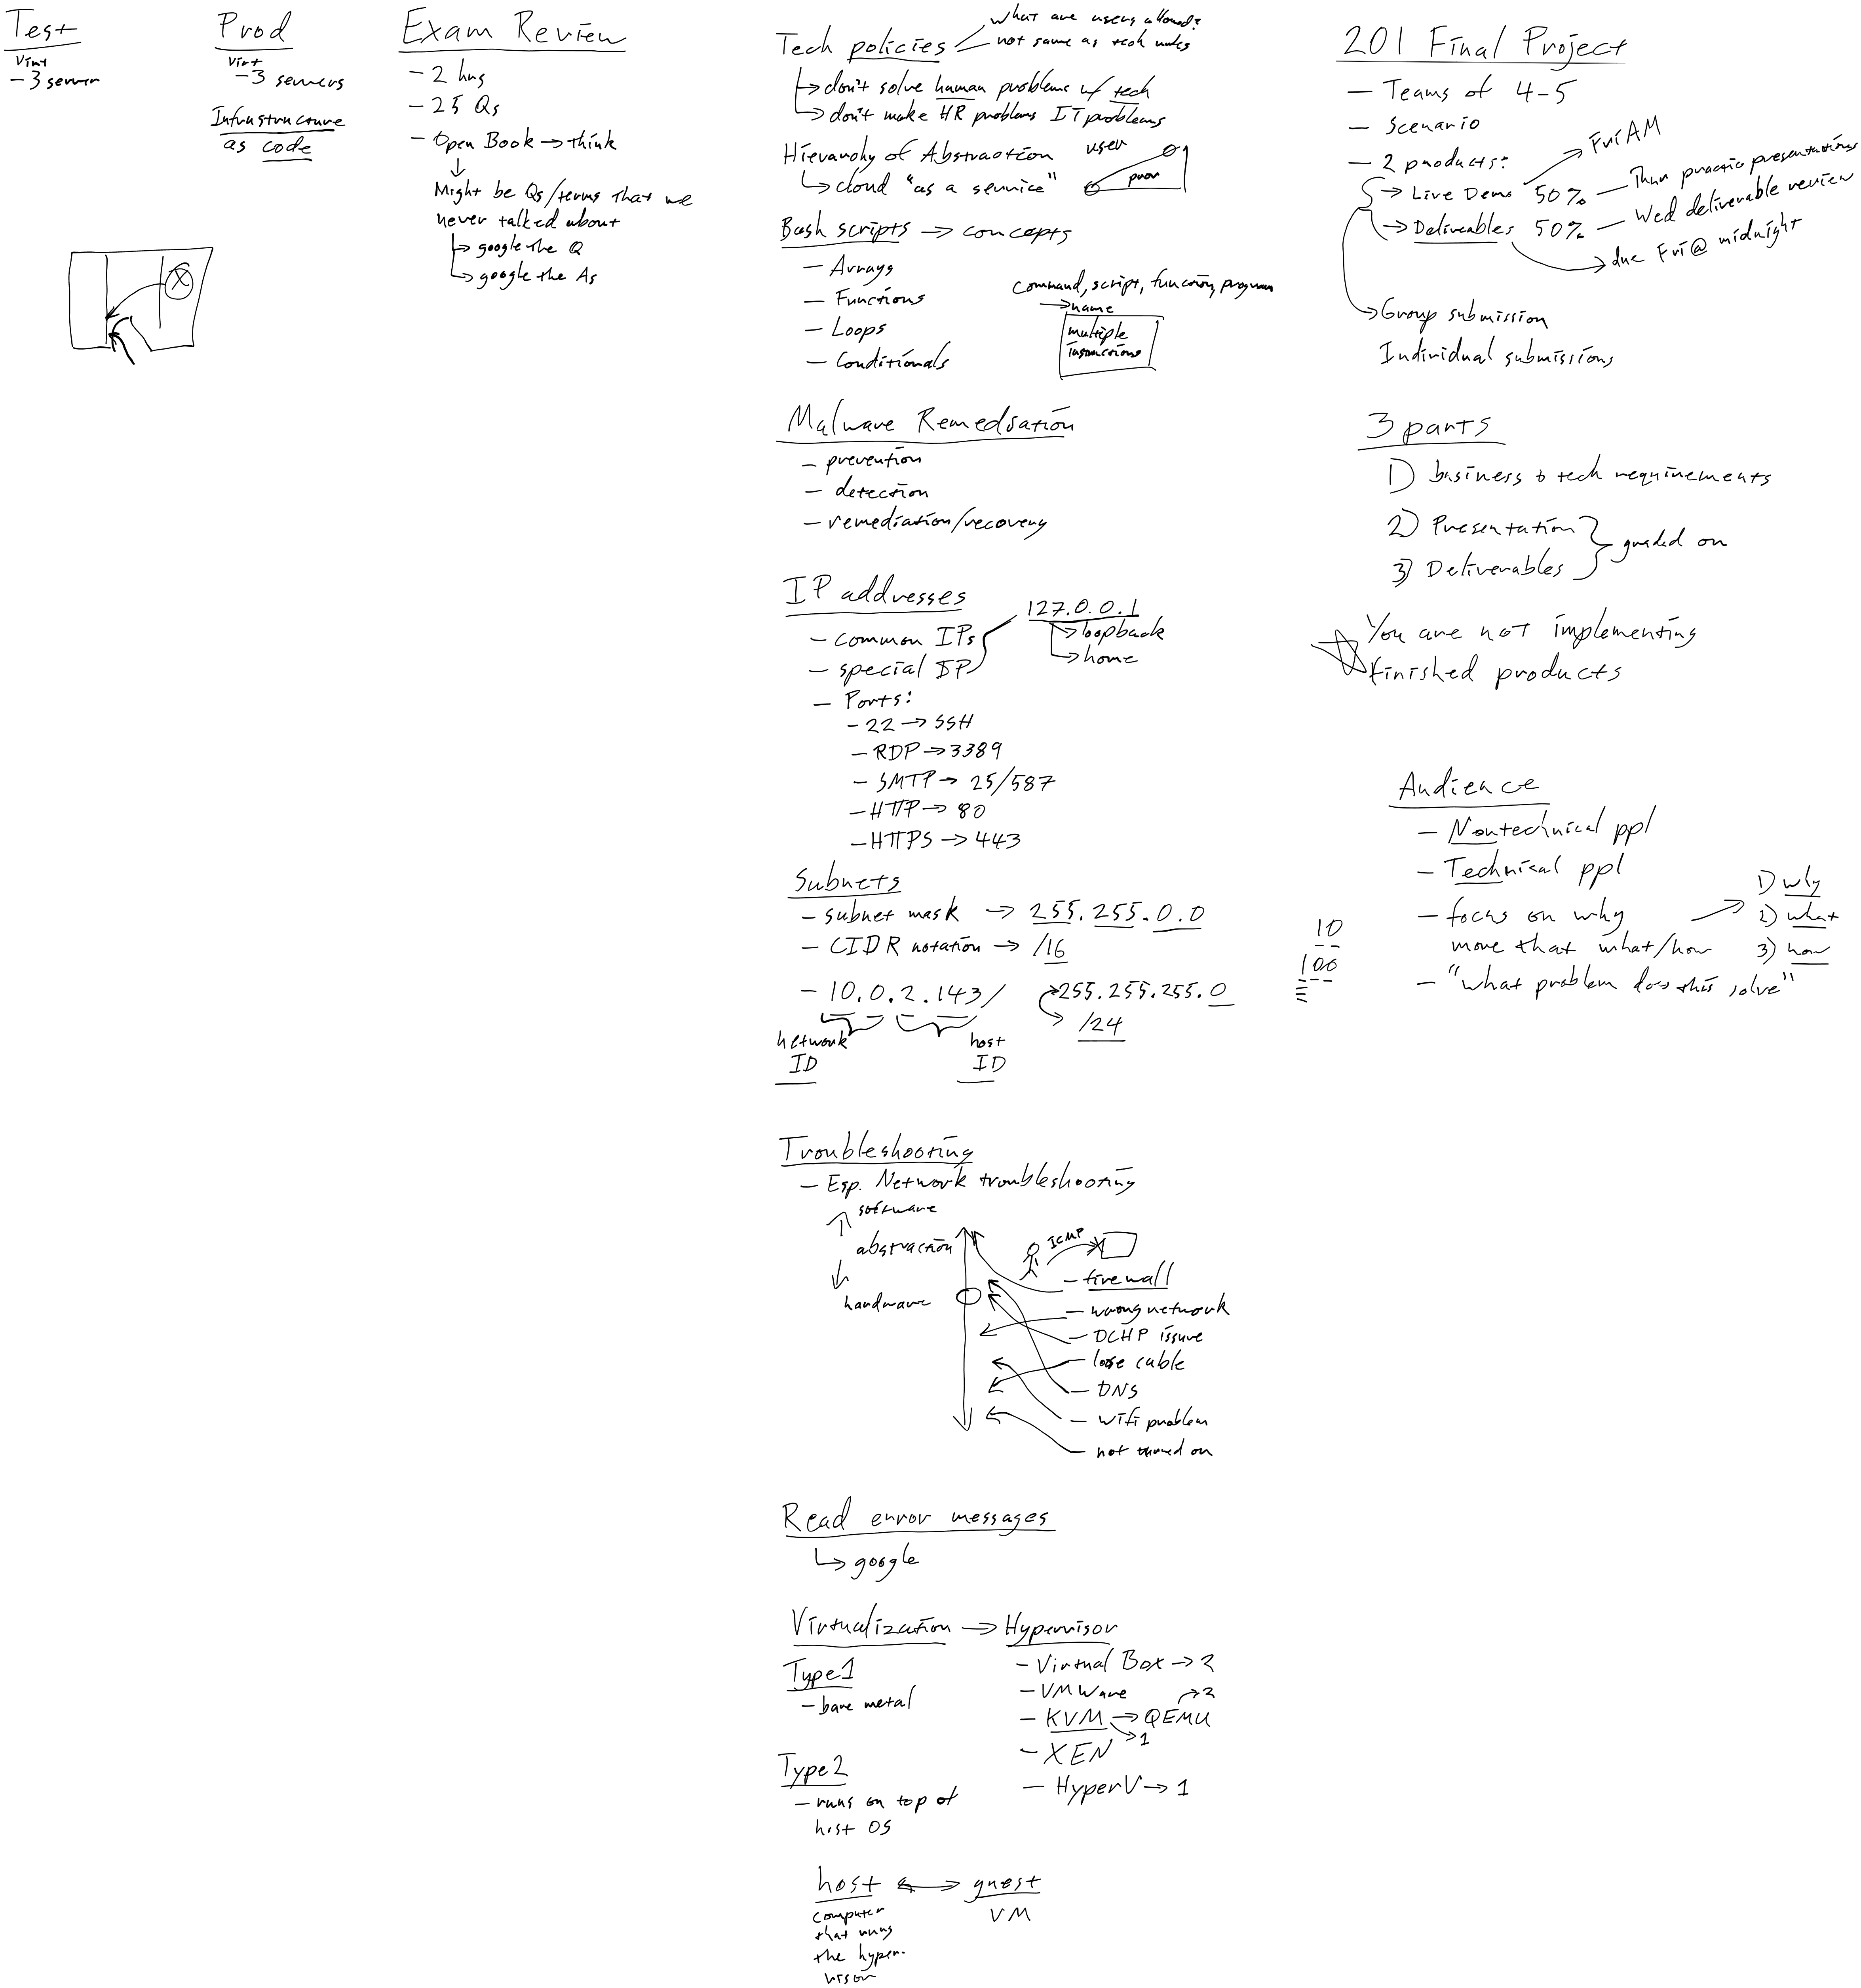 Test
Virt
- 3 server
Prod
Virt
- 3 servers
Infrastructure
as code
Exam Review
- 2 hrs
- 25 Qs
- Open Book → think
Might be Qs/terms that we
never talked about
↳ google the Q
↳ google the As
Tech policies
what are users allowed?
not same as tech rules
↳ don't solve human problems w/ tech
↳ don't make HR problems IT problems
Hierarchy of Abstraction
↳ cloud "as a service"
user
prov
Bash scripts → concepts
- Arrays
- Functions
- Loops
- Conditionals
command, script, function, program
→ name
multiple
instructions
Malware Remediation
- prevention
- detection
- remediation/recovery
IP addresses
- common IPs
- special IP
127.0.0.1
↳ loopback
↳ home
- Ports:
- 22 → SSH
- RDP → 3389
- SMTP → 25/587
- HTTP → 80
- HTTPS → 443
Subnets
- subnet mask → 255.255.0.0
- CIDR notation → /16
- 10.0.2.143/
255.255.255.0
/24
network
ID
host
ID
Troubleshooting
- Esp. Network troubleshooting
software
abstraction
hardware
ICMP
- firewall
- wrong network
- DCHP issue
- loose cable
- DNS
- Wifi problem
- not turned on
Read error messages
↳ google
Virtualization → Hypervisor
Type 1
- bare metal
Type 2
- runs on top of
host OS
- Virtual Box → 2
- VMWare
- KVM → QEMU
→ 2
→ 1
- XEN
- HyperV → 1
host ↔ guest
computer
that runs
the hyper-
visor
VM
201 Final Project
- Teams of 4-5
- Scenario
- 2 products:
→ Live Demo 50% — Thur practice presentations
Fri AM
→ Deliverables 50% — Wed deliverable review
→ due Fri @ midnight
→ Group submission
Individual submissions
3 parts
1) business & tech requirements
2) Presentation
3) Deliverables
graded on
You are not implementing
finished products
Audience
- Nontechnical ppl
- Technical ppl
- focus on why
more that what/how
- "what problem does this solve"
1) why
2) what
3) how
10
100